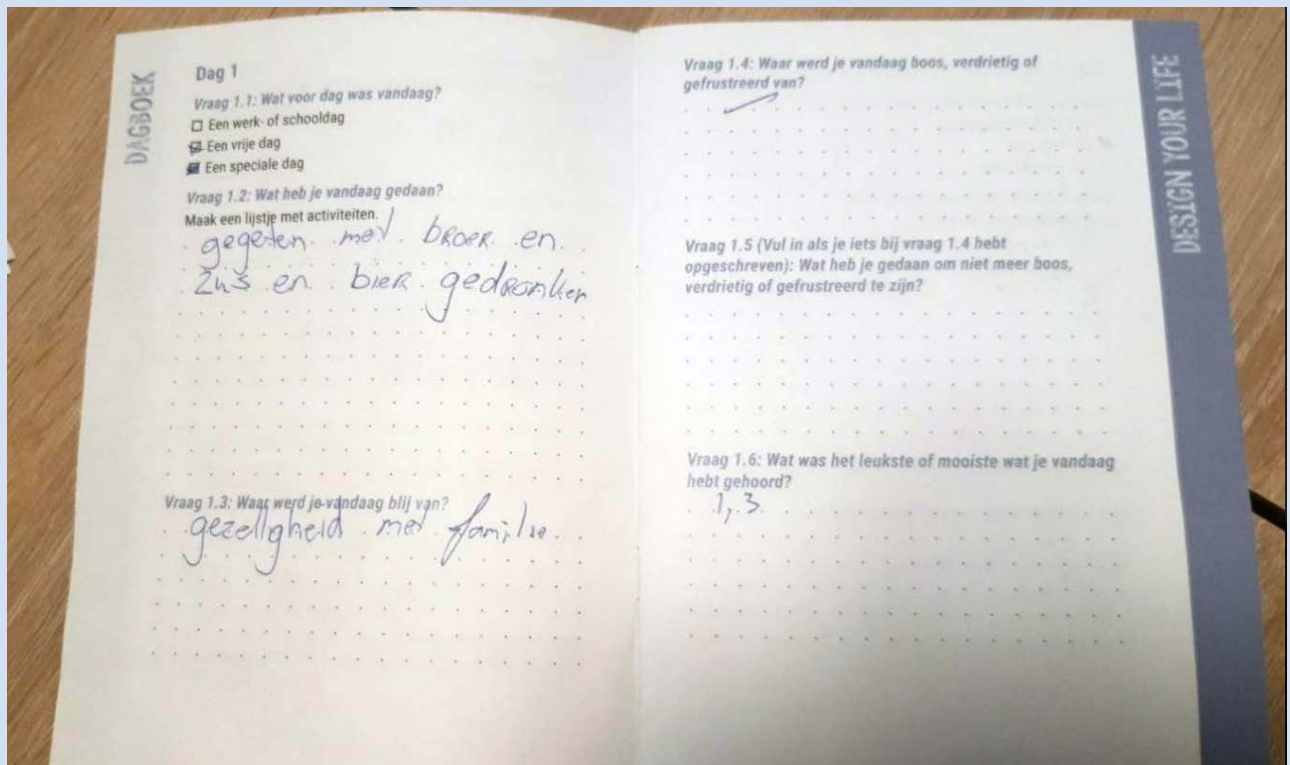 DAGBOEK
Dag 1
Vraag 1.1: Wat voor dag was vandaag?
Een werk- of schooldag
Een vrije dag
Een speciale dag
Vraag 1.2: Wat heb je vandaag gedaan?
Maak een lijstje met activiteiten.
gegeten met broer en
zus en bier gedronken
Vraag 1.3: Waar werd je vandaag blij van?
gezelligheid met familie.
Vraag 1.4: Waar werd je vandaag boos, verdrietig of
gefrustreerd van?
Vraag 1.5 (Vul in als je iets bij vraag 1.4 hebt
opgeschreven): Wat heb je gedaan om niet meer boos,
verdrietig of gefrustreerd te zijn?
Vraag 1.6: Wat was het leukste of mooiste wat je vandaag
hebt gehoord?
1,3
DESIGN YOUR LIFE